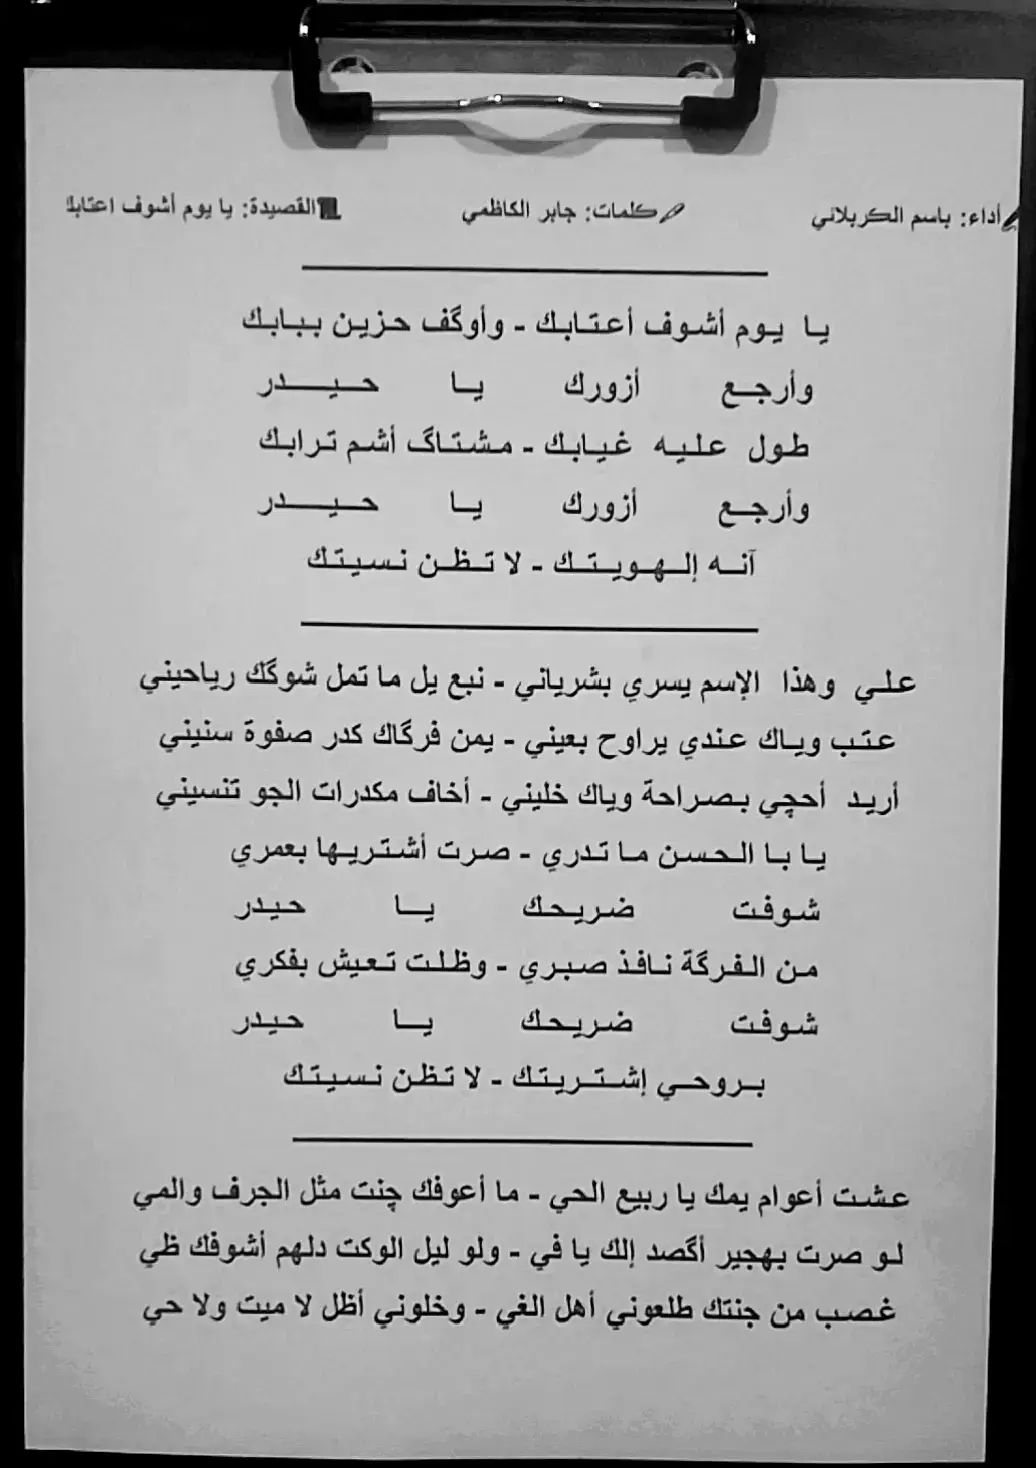 أداء: باسم الكربلائي كلمات: جابر الكاظمي القصيدة: يا يوم أشوف اعتابك
يا يوم أشوف أعتابك - وأوگف حزين ببابك
وأرجع أزورك يا حيدر
طول عليه غيابك - مشتاگ أشم ترابك
وأرجع أزورك يا حيدر
آنه إلهويتك - لا تظن نسيتك
علي وهذا الإسم يسري بشرياني - نبع يل ما تمل شوگك رياحيني
عتب وياك عندي يراوح بعيني - يمن فرگاك كدر صفوة سنيني
أريد أحچي بصراحة وياك خليني - أخاف مكدرات الجو تنسيني
يا با الحسن ما تدري - صرت أشتريها بعمري
شوفت ضريحك يا حيدر
من الفرگة نافذ صبري - وظلت تعيش بفكري
شوفت ضريحك يا حيدر
بروحي إشتريتك - لا تظن نسيتك
عشت أعوام يمك يا ربيع الحي - ما أعوفك چنت مثل الجرف والمي
لو صرت بهجير أگصد إلك يا في - ولو ليل الوكت دلهم أشوفك ظي
غصب من جنتك طلعوني أهل الغي - وخلوني أظل لا ميت ولا حي